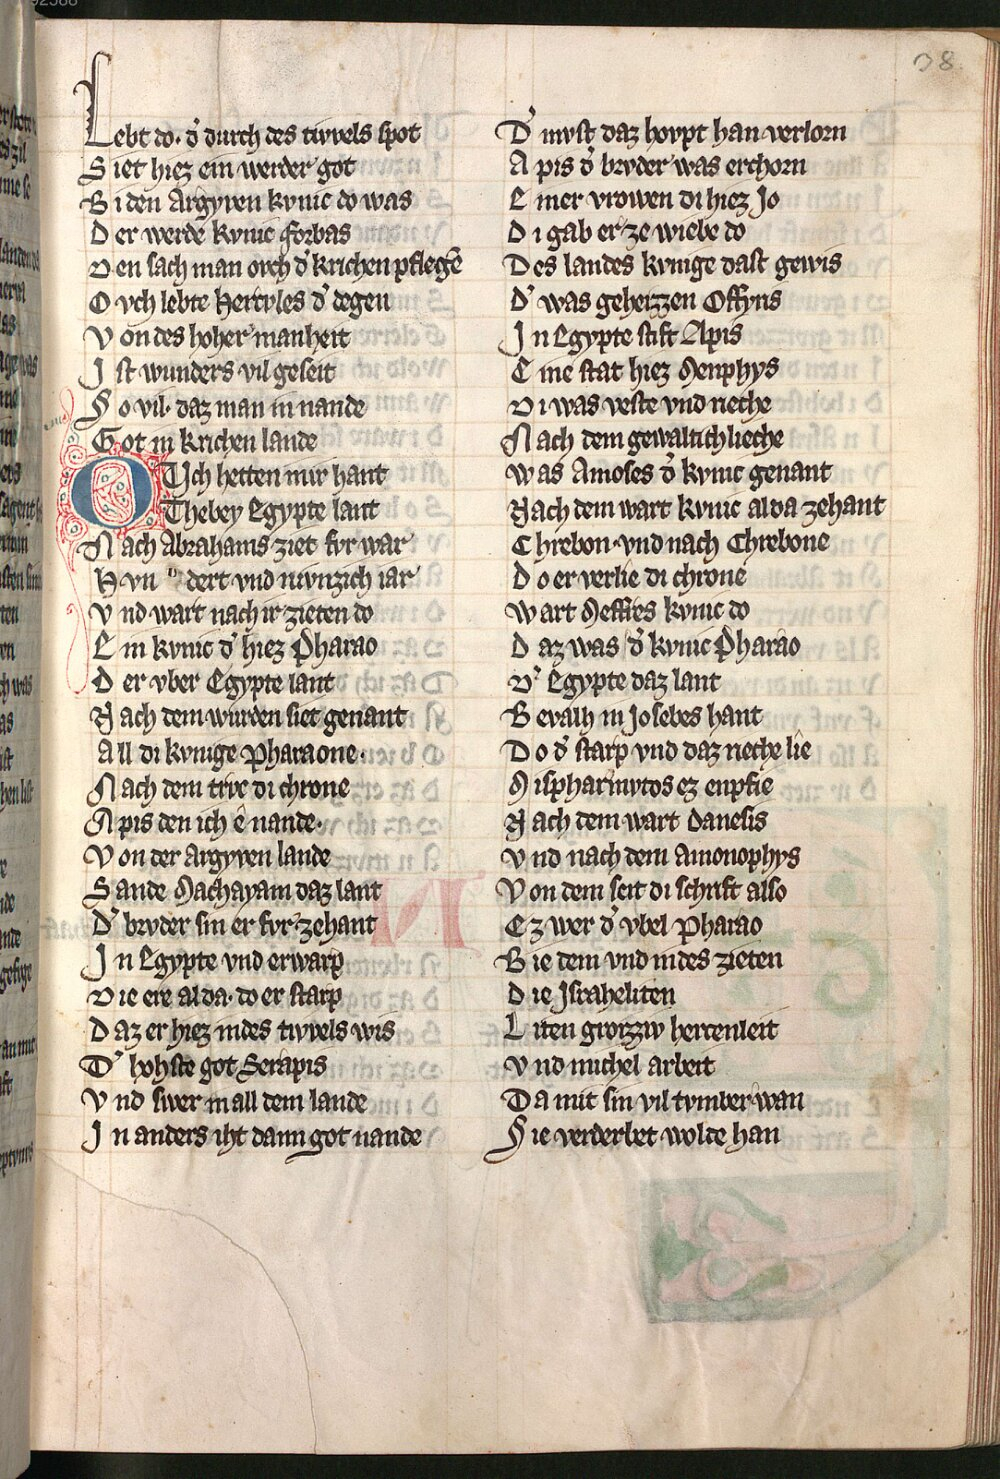 38
Lebt do. d' durch des tivvels spot
Siet hiez ein werder got
Bi den Argyven kvnic do was
Der werde kvnic fforbas
Den sach man ovch d' krichen pflegē
Ovch lebte Hercvles d' degen
Von des hoher manheit
Ist wunders vil geseit
So vil. daz man in nande
Got in krichen lande
OVch hetten nur hant
Thebey Egypte lant
Nach Abrahams ziet fvr war
Hvndert vnd nivnzich iar
Vnd wart nach ir zieten do
Ein kvnic d' hiez Pharao
Der vber Egypte lant
Nach dem wurden siet genant
All di kvnige pharaone.
Nach dem trvc di chrone
Apis den ich ê nande.
Von der Argyven lande
Sande Machayam daz lant
D' brvder sin er fvr zehant
In Egypte vnd erwarp
Die ere alda. do er starp
Daz er hiez in des tivvels wis
D' hohste got Serapis
Vnd swer in all dem lande
In anders iht dann got nande
D' mvst daz hovpt han verlorn
Apis d' brvder was erchorn
Einer vrowen di hiez Jo
Di gab er ze wiebe do
Des landes kvnige dast gewis
D' was geheizzen Offyris
In Egypte stift Apis
Eine stat hiez Menphys
Di was veste vnd riche
Nach dem gewaltichlieche
Was Amoses d' kvnic genant
Nach dem wart kvnic alda zehant
Chrebon. vnd nach Chrebone
Do er verlie di chrone
Wart Meffies kvnic do
Daz was d' kvnic Pharao
D' Egypte daz lant
Bevalh in Josebes hant
Do d' starp vnd daz riche lie
Mispharmvtos ez enpfie
Nach dem wart Danesis
Vnd nach dem Amonophys
Von dem seit di schrift also
Ez wer d' vbel Pharao
Bie dem vnd in des zieten
Die Israheliten
Liten grozziv hercenleit
Vnd michel arbeit
Da mit sin vil tvmber wan
Sie verderbet wolde han